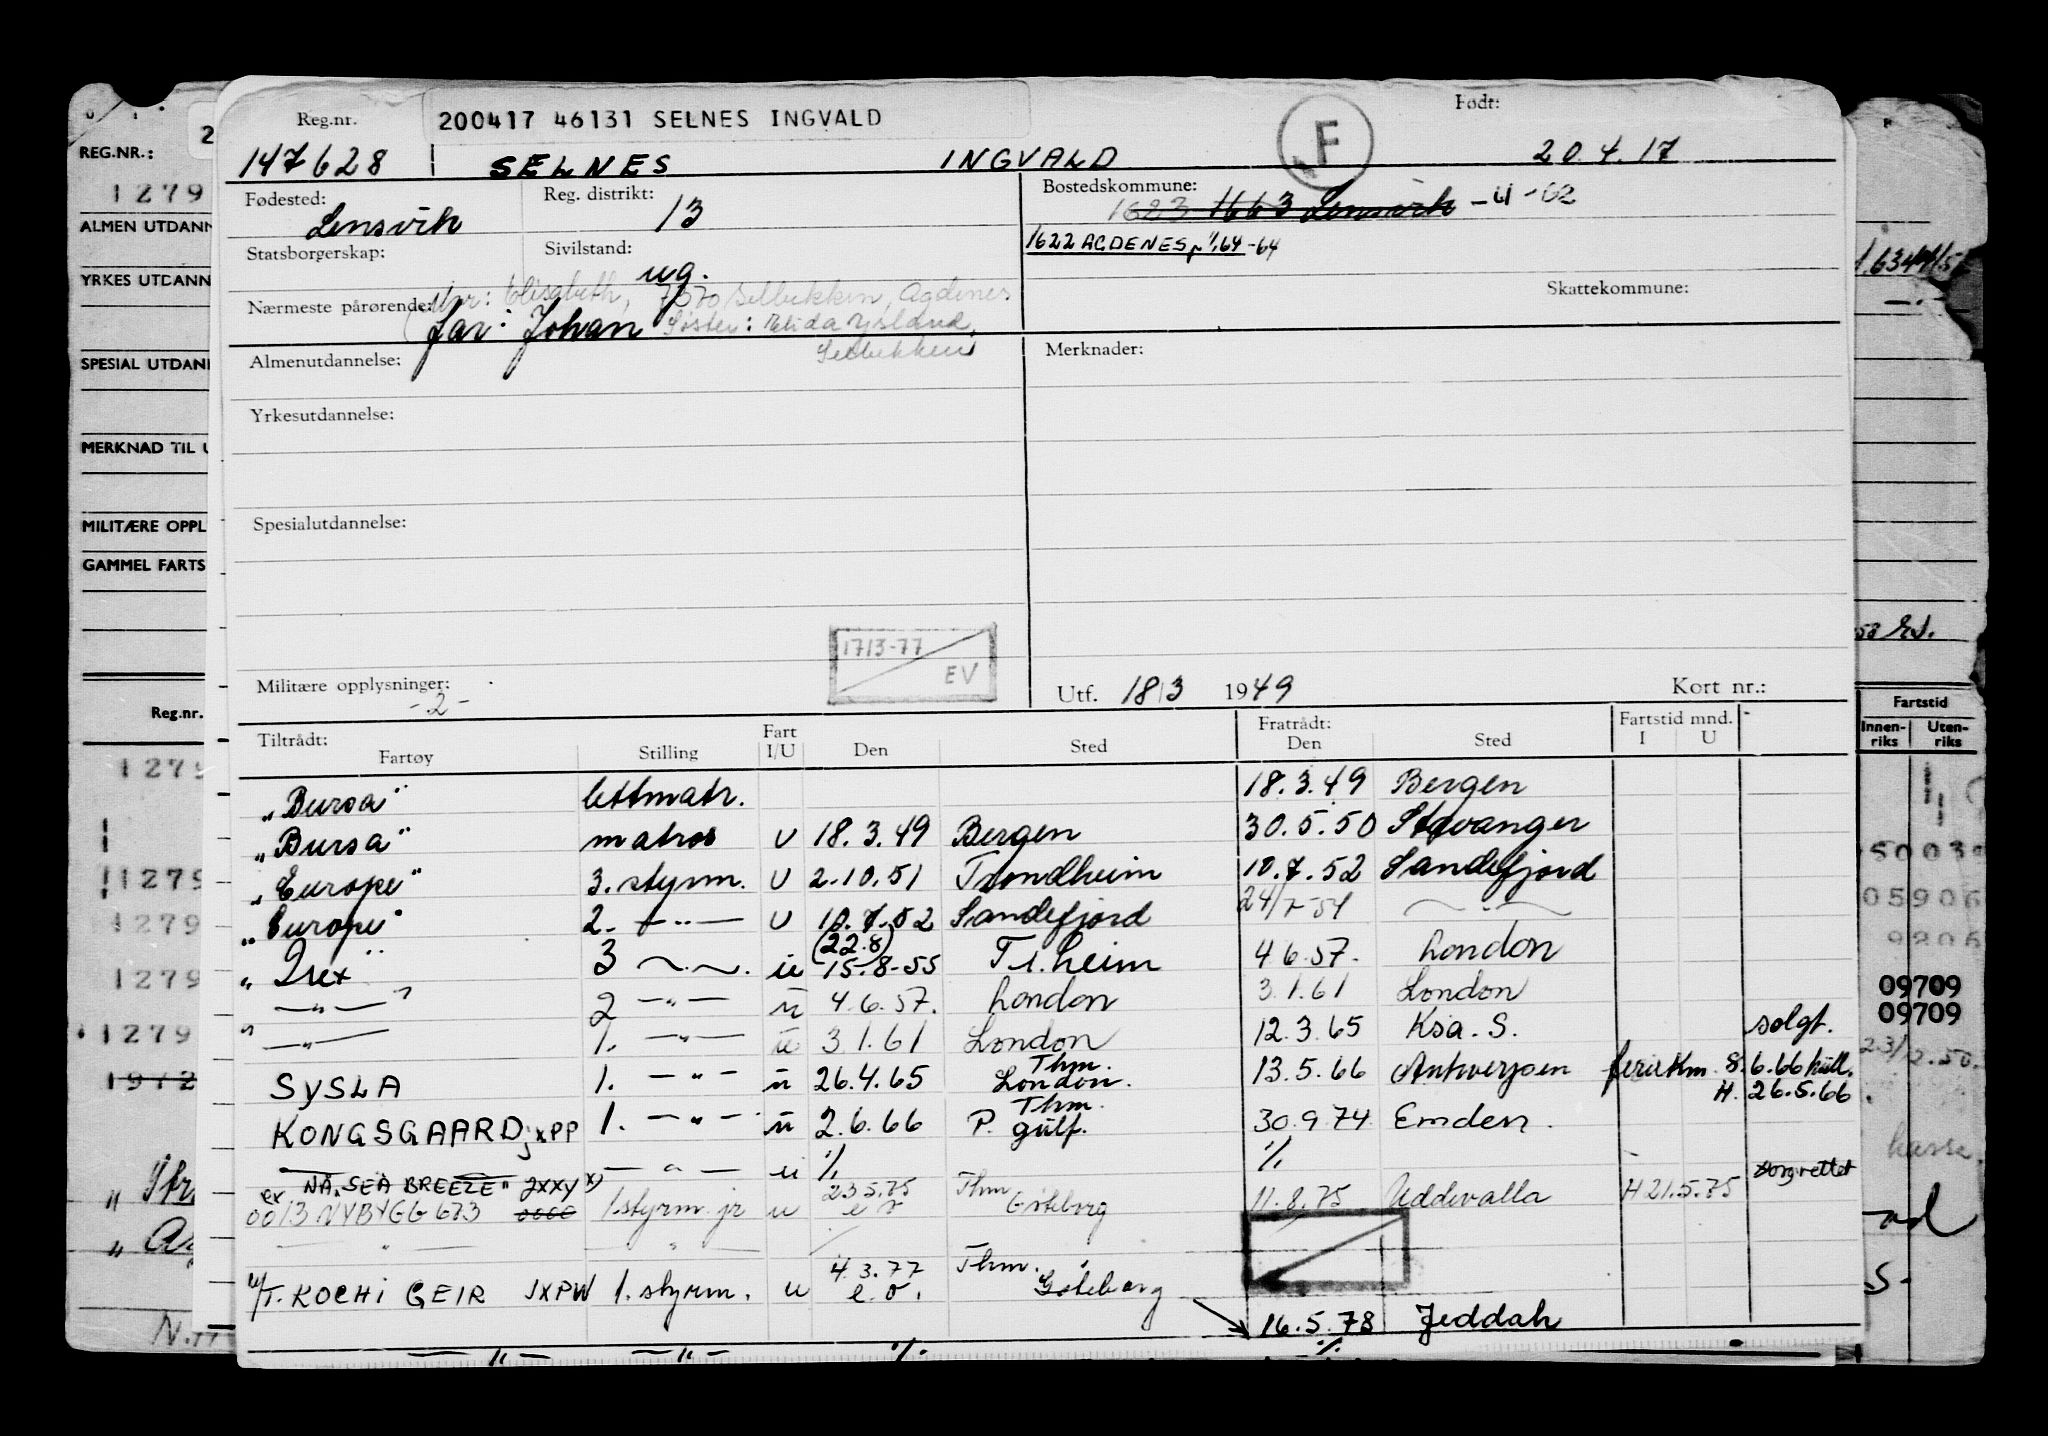 Reg.nr. 200417 46131 SELNES INGVALD F Født:
147628 SELNES INGVALD 20.4.17
Fødested: Lensvik Reg. distrikt: 13 Bostedskommune: 1623 1663 Lensvik -61-62
1622 AGDENES 1/1.64-64
Statsborgerskap: Sivilstand: ug. Skattekommune:
Mor: Elisabeth, 7370 Selbekken, Agdenes
Nærmeste pårørende: Far: Johan Søster:
Selbekken
Almenutdannelse: Merknader:
Yrkesutdannelse:
Spesialutdannelse:
17/3-77
EV
Militære opplysninger: -2- Utf. 18/3 1949 Kort nr.:
Tiltrådt: Fart Fratrådt: Fartstid mnd.
Fartøy Stilling I/U Den Sted Den Sted I U
"Bursa" lettmatr. 18.3.49 Bergen
"Bursa" matros U 18.3.49 Bergen 30.5.50 Stavanger
"Europe" 3. styrm. U 2.10.51 Trondheim 10.7.52 Sandefjord
"Europe" 2. —"— U 10.7.52 Sandefjord 24/7-54 —"—
(22.8)
"Irex" 3 —"— u 15.8-55 Tr.heim 4.6.57. London
—"— 2 —"— u 4.6.57. London 3.1.61 London
—"— 1. —"— u 3.1.61 London 12.3.65 Ksa. S. solgt.
SYSLA 1. —"— u 26.4.65 Thm. London. 13.5.66 Antwerpen 8.6.66
H. 26.5.66
KONGSGAARD JXPP 1. —"— u 2.6.66 Thm. P. gulf. 30.9.74 Emden.
—"— u % %
NÅ "SEA BREEZE" JXXY x)
ex 0013 NYBYGG 673 1 styrm. jr u 23.5.75 e.o Thm Göteborg 11.8.75 Uddevalla H 21.5.75
—"— —"—
M/T. KOCHI GEIR JXPW 1. styrm. u 4.3.77 e.o. Thm. Göteborg
16.5.78 Jeddah
—"— —"— % %
REG.NR.:
1279
ALMEN UTDANN
YRKES UTDANN
SPESIAL UTDAN
MERKNAD TIL U
MILITÆRE OPPL
GAMMEL FARTS
Reg.nr.
1279
1279
1279
1279
1279
Fartstid
Innen-riks Uten-riks
09709
09709